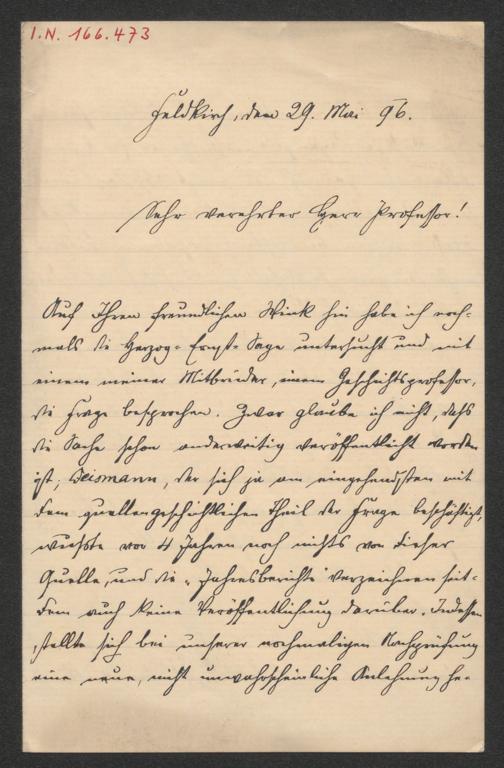 I.N. 166.473
Feldkirch, den 29. Mai 96.
Sehr verehrter Herr Professor!
Auf Ihren freundlichen Wink hin habe ich noch-
mals die Herzog-Ernst-Sage untersucht und mit
einem meiner Mitbrüder, einem Geschichtsprofessor,
die Frage besprochen. Zwar glaube ich nicht, daß
die Sache schon anderweitig veröffentlicht worden
ist; der sich ja am eingehendsten mit
dem quellengeschichtlichen Theil der Frage beschäftigt,
wußte vor 4 Jahren noch nichts von dieser
Quelle, und die „Jahresberichte" verzeichnen seit-
dem auch keine Veröffentlichung darüber. Indessen
stellte sich bei unserer nochmaligen Nachprüfung
eine neue, nicht unwahrscheinliche Anlehnung he-